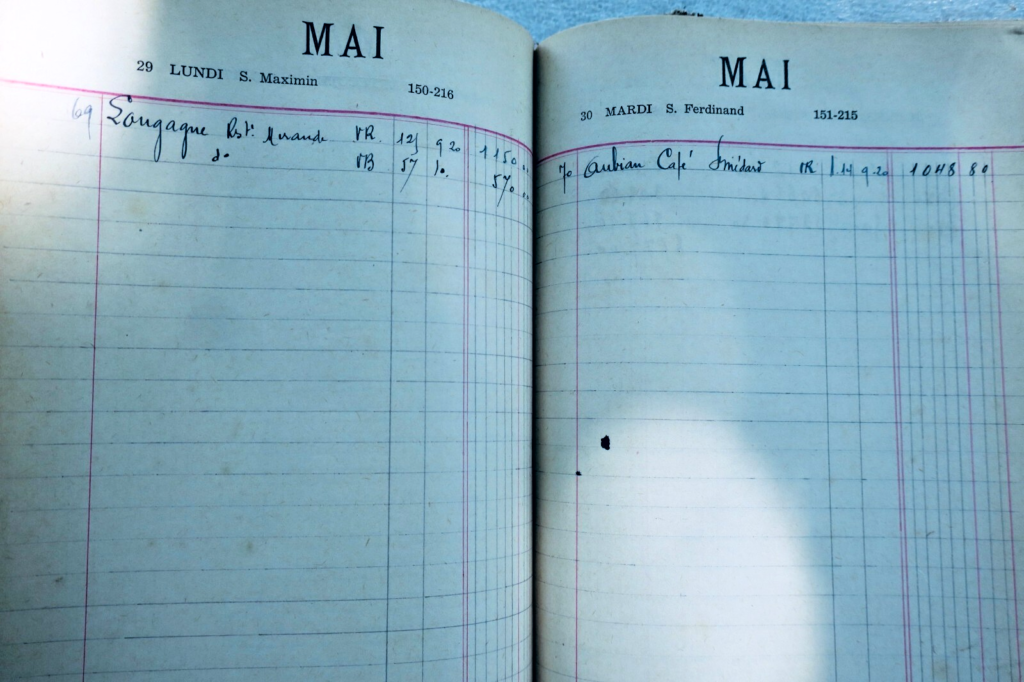 MAI
29 LUNDI S. Maximin 150-216
69 Lougagne Rest. Mirande VR. 125 9 20 1150 ..
do VB 57 10. 570 ..
MAI
30 MARDI S. Ferdinand 151-215
70 Aubian Café Smédard VR 114 9.20 1048 80